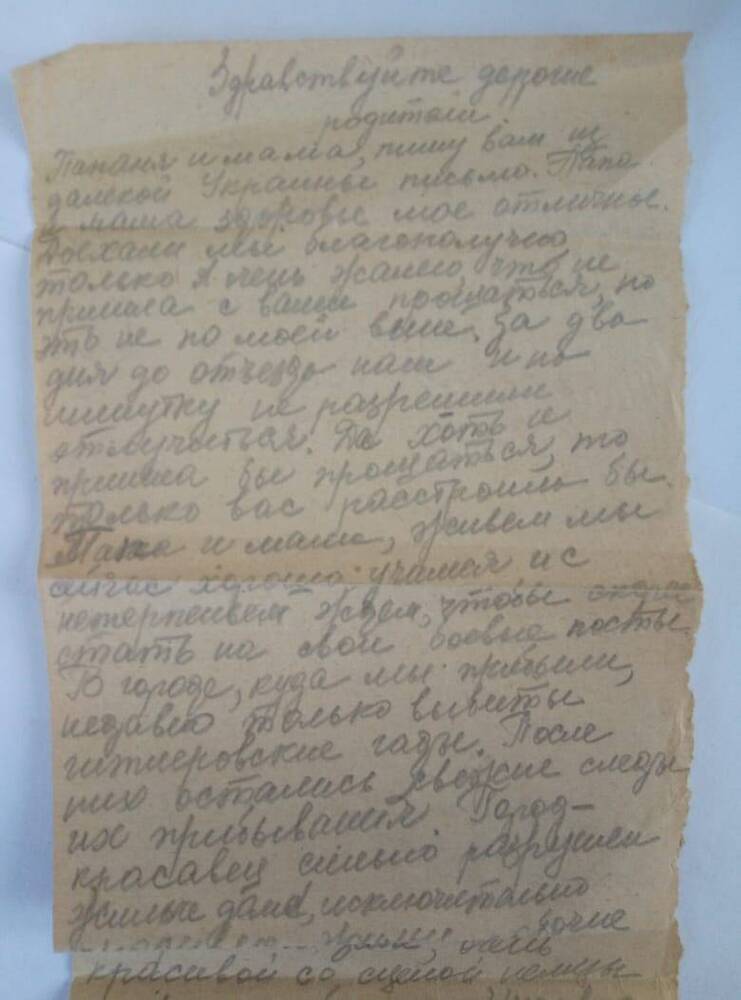 Здравствуйте дорогие
родители.
Папаня и мама, пишу вам из
далекой Украины письмо. Папа
и мама здоровье мое отлично.
Доехали мы благополучно
только я очень жалею что не
пришла с вами прощаться, но
это не по моей вине. За два
дня до отъезда нам и на
минутку не разрешили
отлучиться. Да хоть и
пришла бы прощаться, то
только вас расстроила бы.
Папа и мама, живем мы
сейчас хорошо: учимся и с
нетерпеньем ждем, чтобы скорей
стать на свои боевые посты.
В городе, куда мы прибыли,
недавно только выбиты
гитлеровские гады. После
них остались свежие следы
их прибывания. Город-
красавец сильно разрушен
жилые дома, исключительно
очень
красивой со сценой немцы